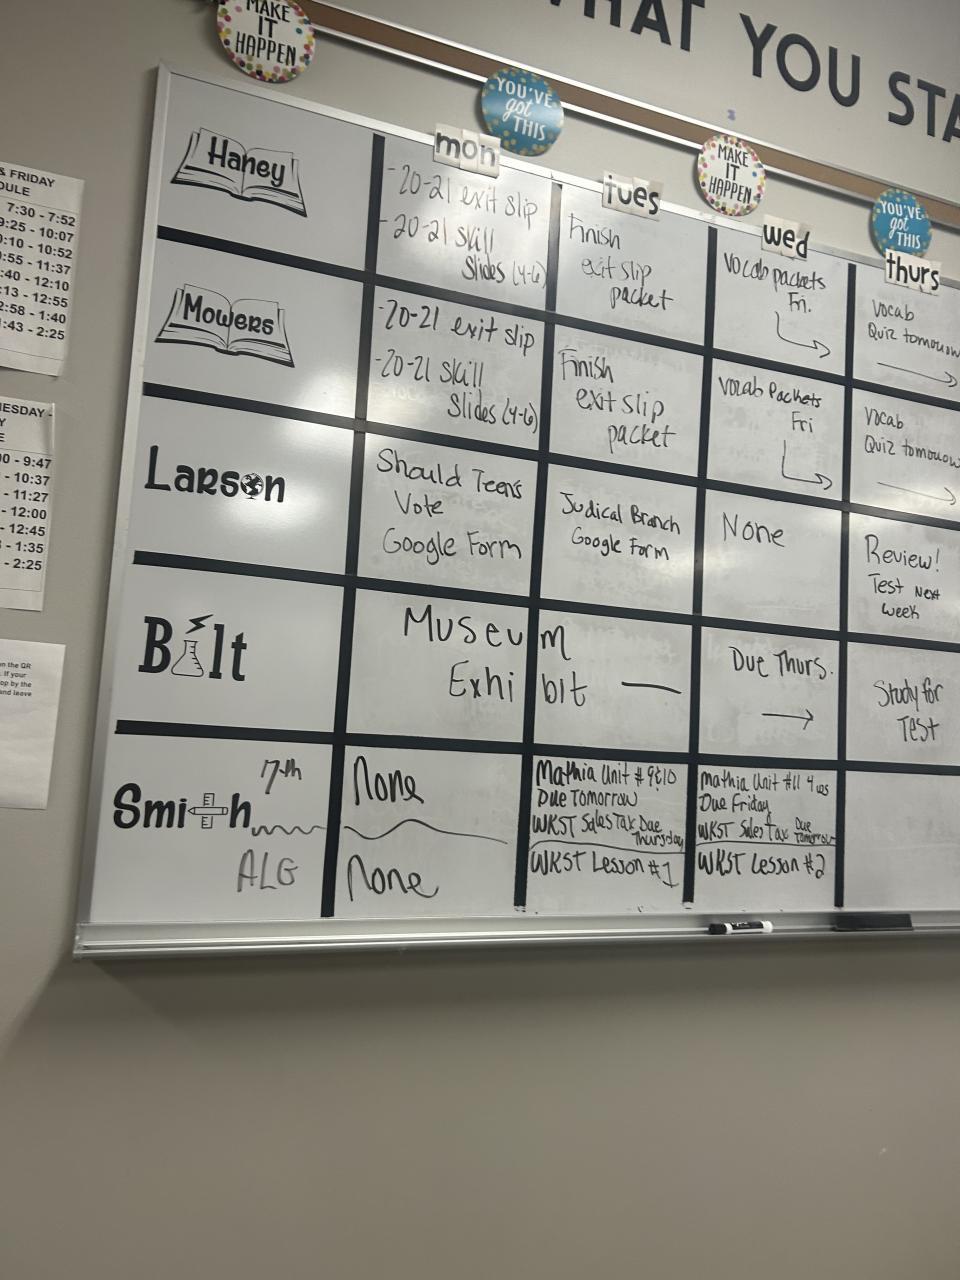 MAKE
IT
HAPPEN
WHAT YOU STA
YOU'VE
got
THIS
MAKE
IT
HAPPEN
YOU'VE
got
THIS
& FRIDAY
DULE
7:30 - 7:52
9:25 - 10:07
0:10 - 10:52
:55 - 11:37
:40 - 12:10
:13 - 12:55
2:58 - 1:40
1:43 - 2:25
ESDAY -
Y
E
00 - 9:47
- 10:37
- 11:27
- 12:00
- 12:45
- 1:35
- 2:25
n the QR
. If your
op by the
and leave
mon
tues
wed
thurs
Haney
-20-21 exit slip
-20-21 skill
Slides (4-6)
Finish
exit slip
packet
Vocab packets
Fri.
Vocab
Quiz tomorrow
Mowers
-20-21 exit slip
-20-21 skill
Slides (4-6)
Finish
exit slip
packet
Vocab Packets
Fri
Vocab
Quiz tomorrow
Larson
Should Teens
Vote
Google Form
Judical Branch
Google Form
None
Review!
Test Next
week
Bolt
Museum
Exhibit —
Due Thurs.
Study for
Test
Smith
7th
None
Mathia Unit # 9&10
Due Tomorrow
WKST Sales Tax Due
Thursday
Mathia Unit #11 4
Due Friday
WKST Sales Tax Due
Tomorrow
ALG
None
WKST Lesson #1
WKST Lesson #2